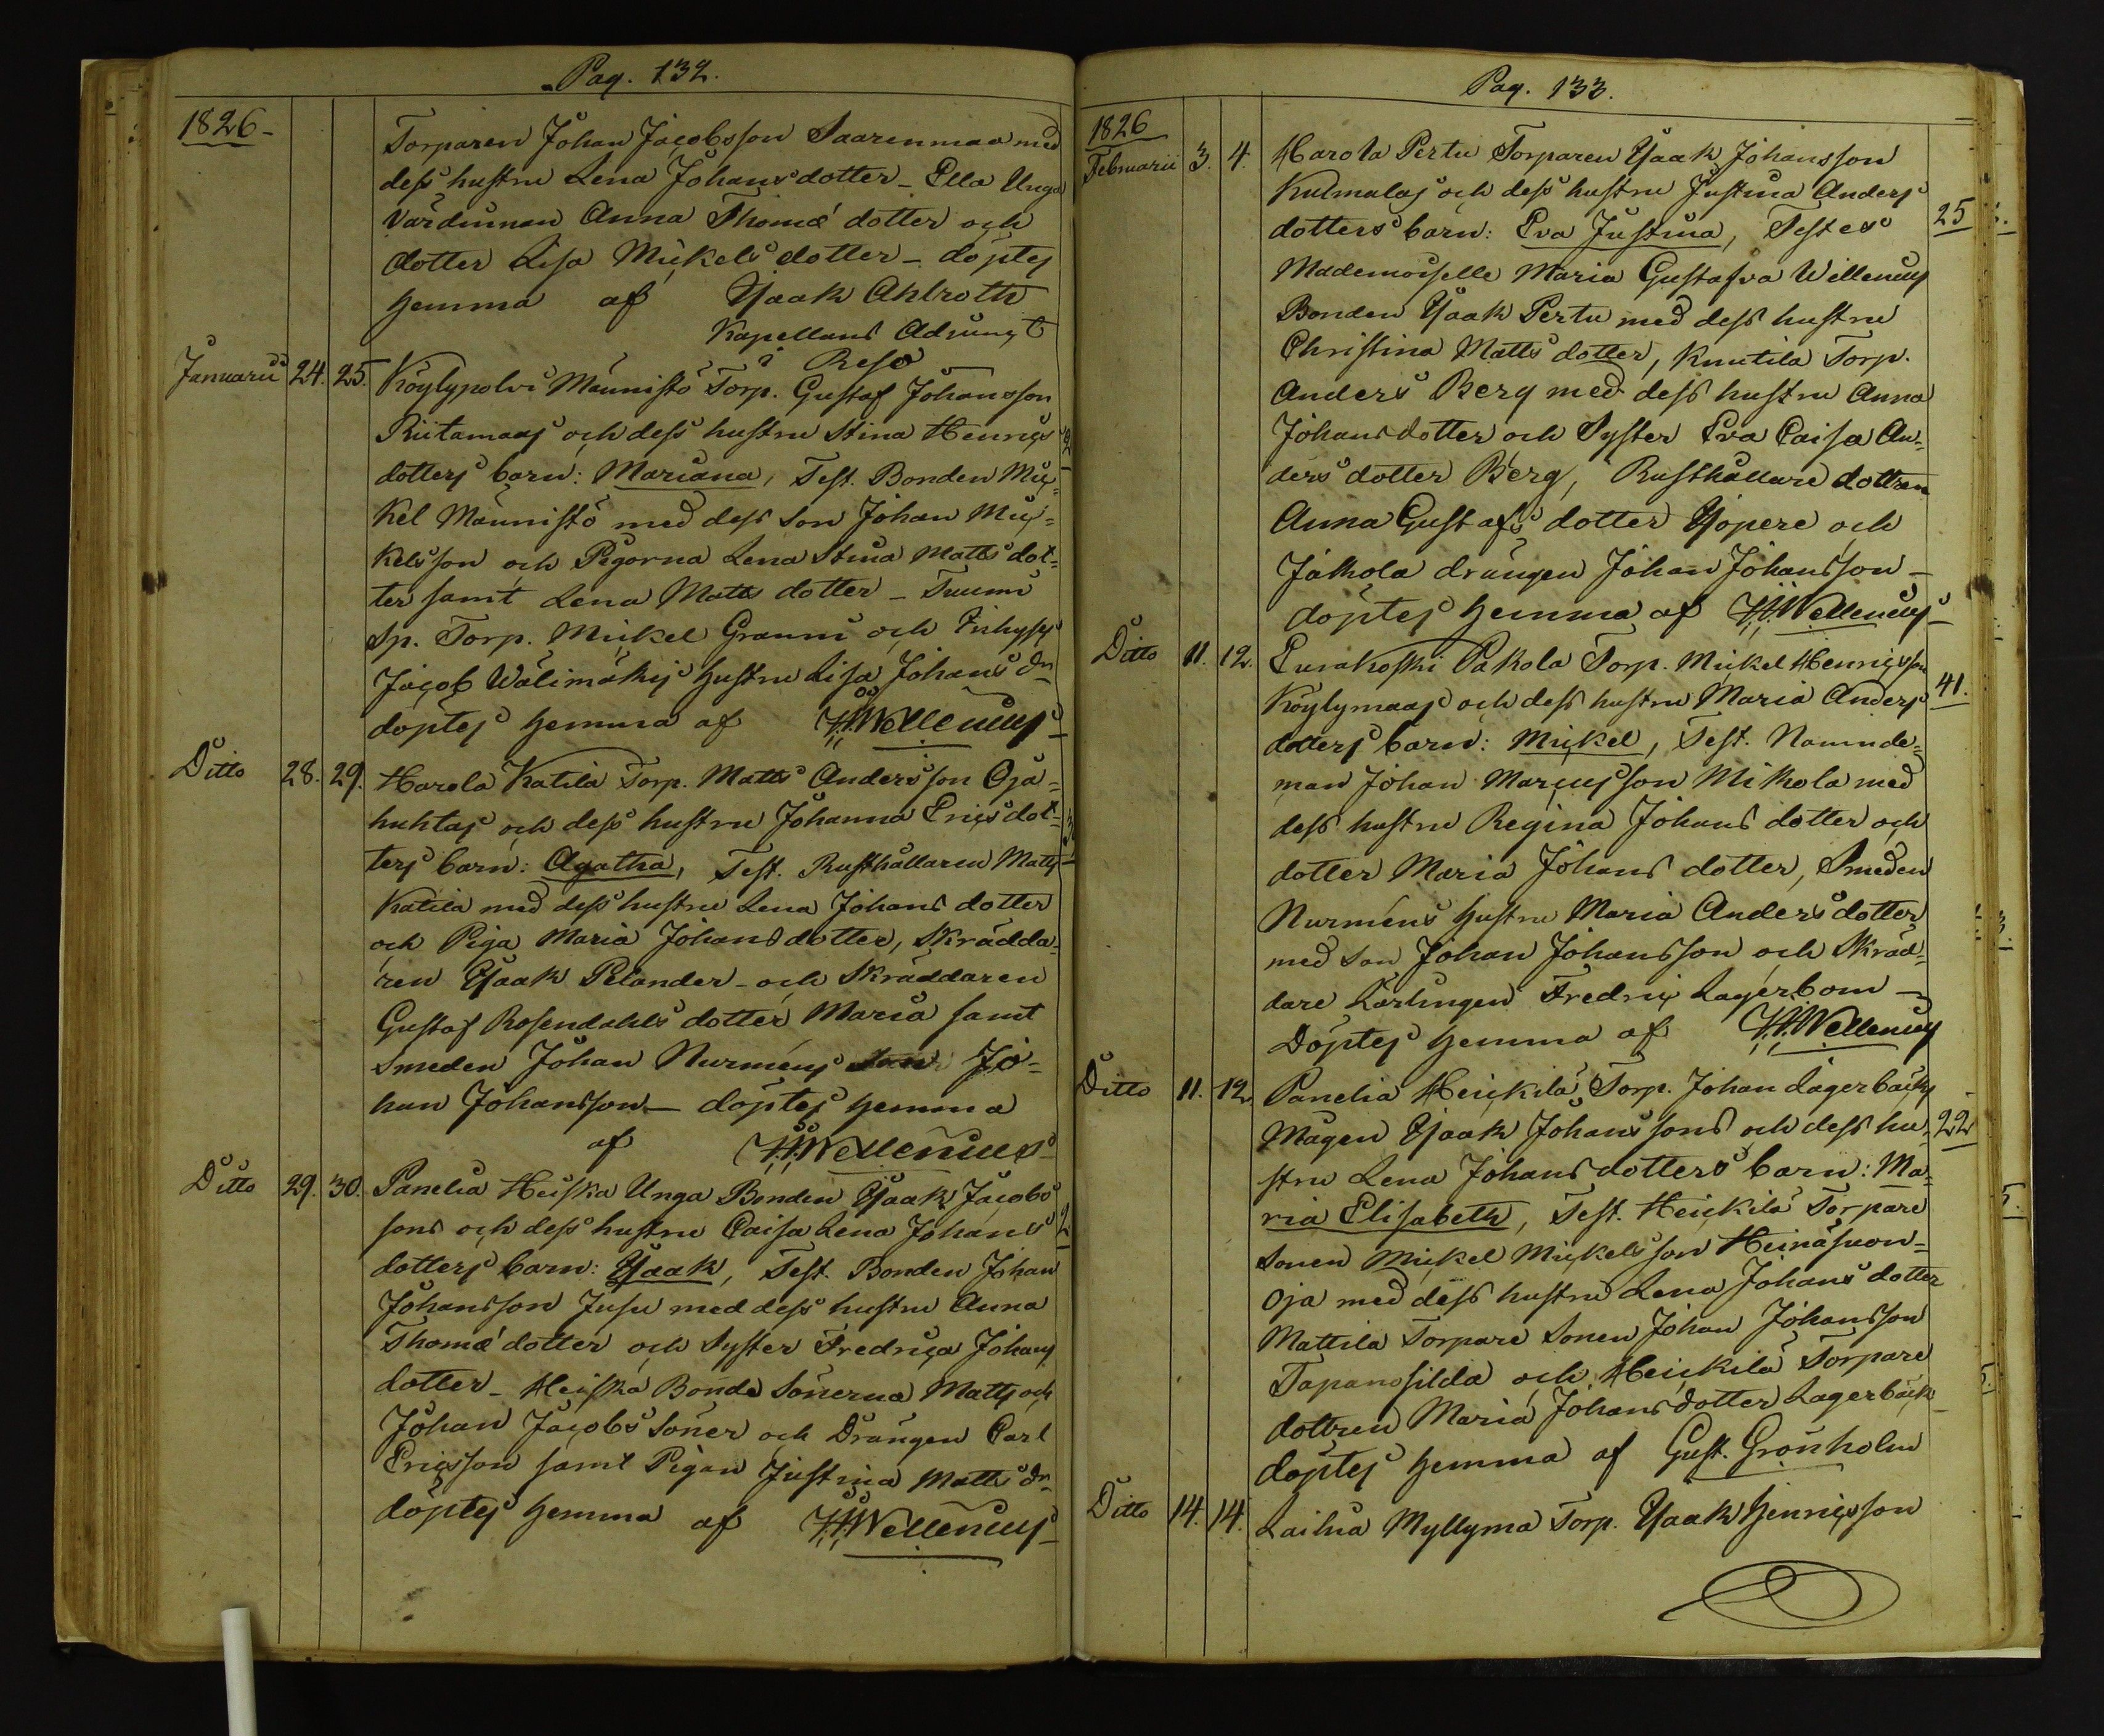 Pag. 132.
1826-
Torparen Johan Jacobsson Saarenmaa med
dess hustru Lena Johans dotter - Ella Unga
Värdinnan Anna Thomæ dotter och
dotter Lisa Mickels dotter - döptes
hemma af Isaak Ahlroth
Kapellans Adjunct
i Reso
Januarii 24. 25. Köylypolvi Männistö Torp. Gustaf Johansson
Riitamaas och dess hustru Stina Henrics
dotters barn: Mariana, Test. Bonden Mic-
kel Männistö med dess Son Johan Mic-
kelsson och Pigorna Lena Stina Matts dot-
ter samt Lena Matts dotter - Tuumi
Sp. Torp. Mickel Granni och Inhyses
Jacob Wälimäkis hustru Lisa Johans dr
döptes hemma af H.H. Wellenius
Ditto 28. 29. Harola Katila Torp. Matts Andersson Oja-
huhtas och dess hustru Johanna Erics dot-
ters barn: Agatha, Test. Rusthållaren Matts
Katila med dess hustru Lena Johans dotter
och Piga Maria Johans dotter, Skrädda-
ren Isaak Pelander - och Skräddaren
Gustaf Rosendahls dotter Maria samt
Smeden Johan Nurmens Son Jo-
han Johansson - döptes hemma
af H.H. Wellenius
Ditto 29. 30. Panelia Heiska Unga Bonden Isaak Jacobs
sons och dess hustru Caisa Lena Johans
dotters barn: Isaak, Test. Bonden Johan
Johansson Jusu med dess hustru Anna
Thomæ dotter och Syster Fredrica Johans
dotter - Heiska Bonde Sönerna Matts och
Johan Jacobs Söner och Drängen Carl
Ericsson samt Pigan Justina Matts dr
döptes hemma af H.H. Wellenius
Pag. 133.
1826
Februarii 3. 4. Harola Pertu Torparen Isaak Johansson
Kulmalas och dess hustru Justina Anders
dotters barn: Eva Justina, Testes 25
Mademoiselle Maria Gustafva Wellenius
Bonden Isaak Pertu med dess hustru
Christina Matts dotter, Knutila Torp.
Anders Berg med dess hustru Anna
Johans dotter och Syster Eva Caisa An-
ders dotter Berg, Rusthållare dottren
Anna Gustafs dotter Yopere och
Jakola drängen Johan Johansson -
döptes hemma af H.H. Wellenius
Ditto 11. 12. Eurakoski Pakola Torp. Mickel Henricsson
Köylymaas och dess hustru Maria Anders 41.
dotters barn: Mickel, Test. Nämnde-
man Johan Marcusson Mikola med
dess hustru Regina Johans dotter och
dotter Maria Johans dotter, Smeden
Nurmens hustru Maria Anders dotter
med Son Johan Johansson och Skräd-
dare Lärlingen Fredric Lagerbom -
Döptes hemma af H.H. Wellenius
Ditto 11. 12. Panelia Heickilä Torp. Johan Lagerbäcks
Mågen Isaak Johans sons och dess hu- 22
stru Lena Johans dotters barn: Ma-
ria Elisabeth, Test. Heickilä Torpare
Sonen Mickel Mickelsson Heinäsuon-
oja med dess hustru Lena Johans dotter
Mattila Torpare Sonen Johan Johansson
Tapanosilda och Heickilä Torpare
dottren Maria Johans dotter Lagerbäck
döptes hemma af Gust. Grönholm
Ditto 14. 14. Lailua Myllymä Torp. Isaak Henricsson